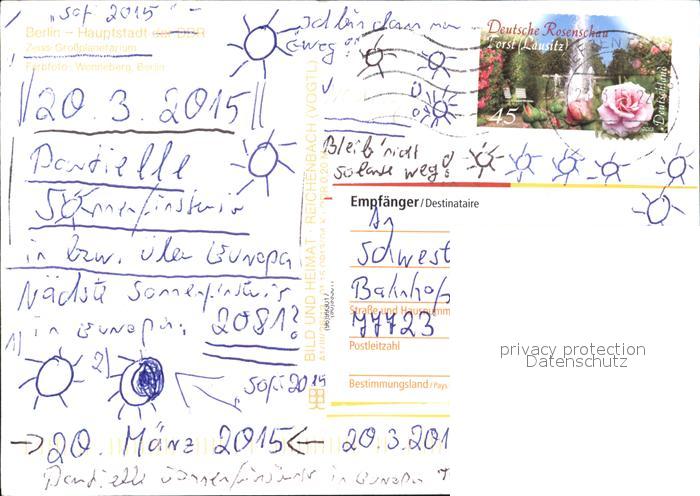 "Sofi 2015"
Berlin – Hauptstadt der DDR
Zeiss-Großplanetarium
Farbfoto: Wenneberg, Berlin
20.3.2015
Partielle
Sonnenfinsternis
in bzw. über Europa
Nächste Sonnenfinsternis
in Europa: 2081?
1)
2)
"Sofi 2015
→ 20. März 2015 ← 20.3.201
Partielle Sonnenfinsternis in Europa
BILD UND HEIMAT · REICHENBACH (VOGTL)
Ich bin dann mal
weg
Bleib' nicht
solange weg!
Deutsche Rosenschau
Forst (Lausitz)
45
Deutschland
Empfänger/Destinataire
An
Schwest
Bahnhof
Straße und Hausnumm
77723
Postleitzahl
Bestimmungsland/Pays
privacy protection
Datenschutz